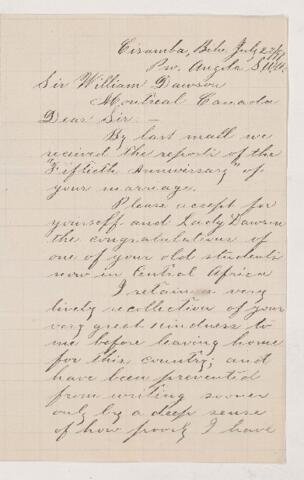 Cisamba, Bihe, July 25/97
Pw. Angola S.W.A.
Sir William Dawson
Montreal Canada
Dear Sir. —
By last mail we
received the report of the
"Fiftieth Anniversary" of
your marriage.
Please accept for
yourself and Lady Dawson
the congratulations of
one of your old students
now in Central Africa
I retain a very
lively recollection of your
very great kindness to
me before leaving home
for this country; and
have been prevented
from writing sooner
only by a deep sense
of how poorly I have